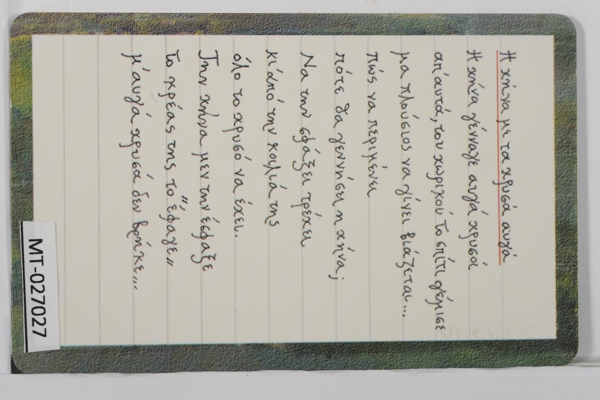 Η χήνα με τα χρυσά αυγά
Η χήνα γένναγε αυγά χρυσά
απ' αυτά, του χωρικού το σπίτι γέμισε
μα πλούσιος να γίνει βιάζεται...
πώς να περιμένει
πότε θα γεννήσει η χήνα;
Να την σφάξει τρέχει
κι από την κοιλιά της
όλο το χρυσό να έχει.
Την χήνα μεν την έσφαξε
το κρέας της το "έφαγε"
μ' αυγά χρυσά δεν βρήκε...
MT-027027